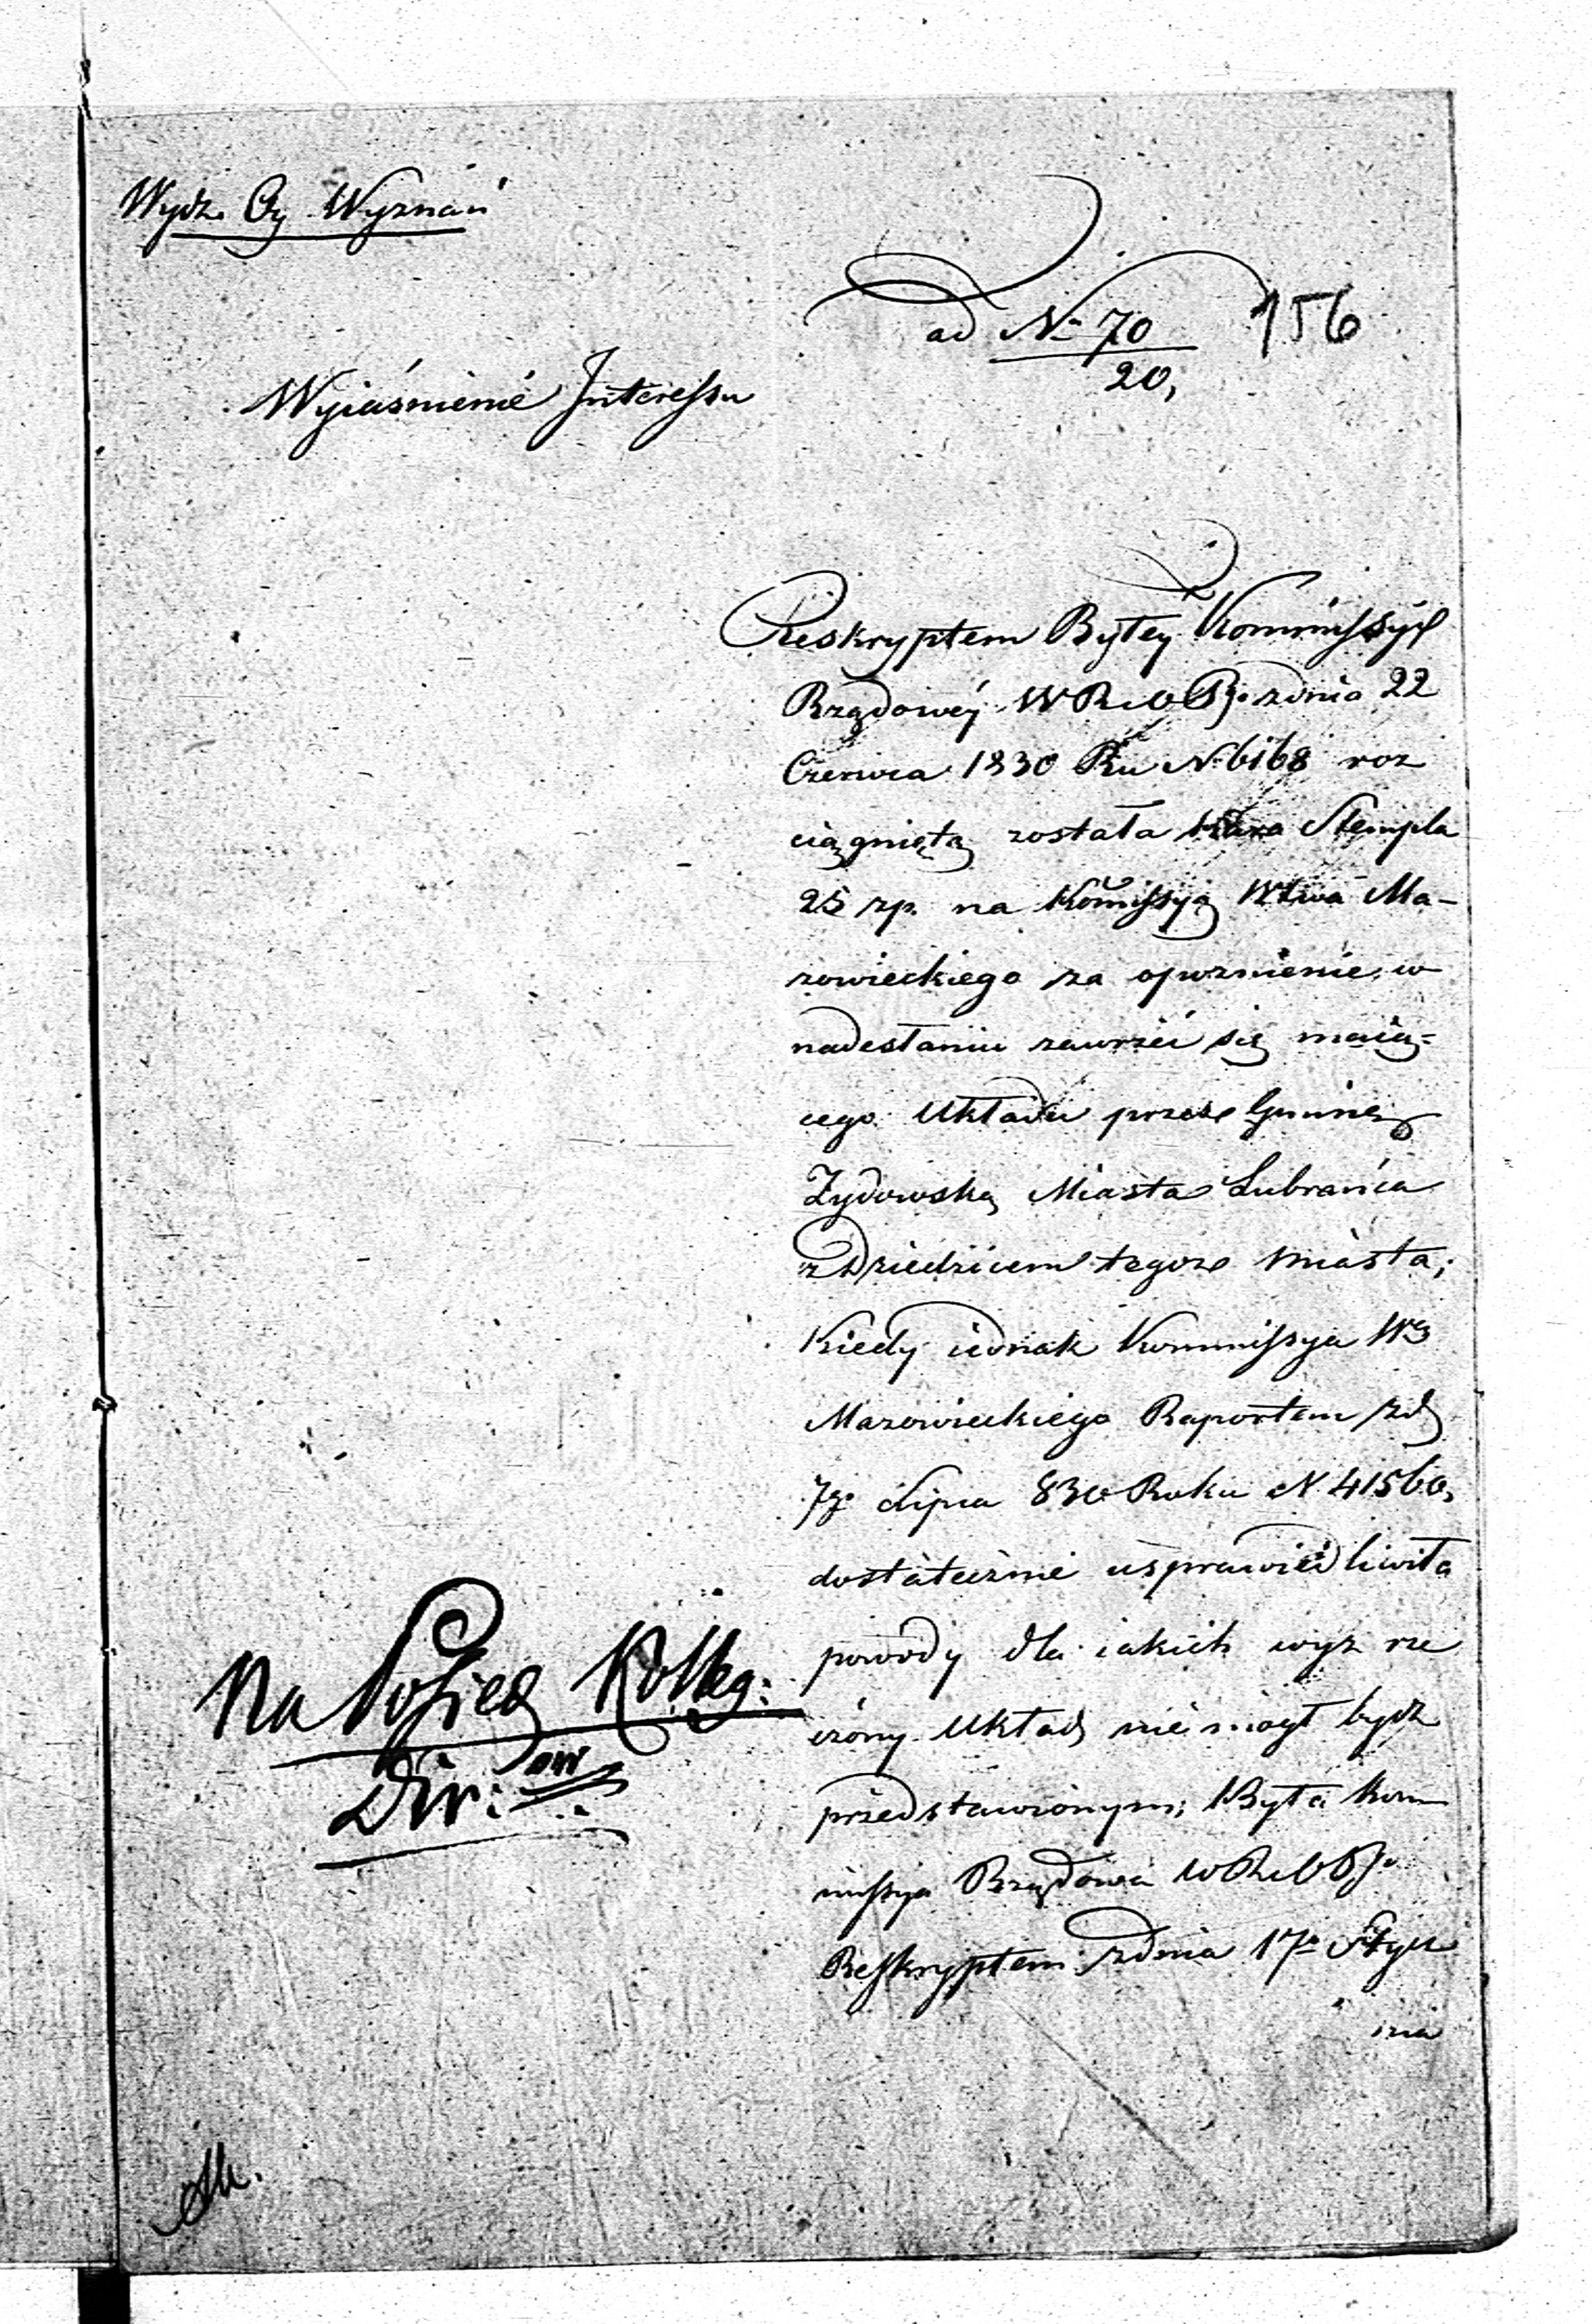 Wydz. Oy Wyznań
ad N 70
20,
156
Wyiaśnienie Interessu
Reskryptem Byłey Kommissyi
Rządowey W R i O P. z dnia 22
Czerwca 1830 Ru N 6168 roz
ciągniętą została kara Stempla
25 zp. na Kommissyą Wtwa Ma-
zowieckiego za opoznienie w
nadesłaniu zawrzeć się maią-
cego Układu przez Gminę
Żydowską Miasta Lubrańca
z Dziedzicem tegoż miasta;
Kiedy iednak Kommissya W
Mazowieckiego Raportem z d
7go Lipca 830 Roku N 41560,
dostatecznie usprawiedliwiła
powody dla iakich wyż rze
czony Układ nie mogł bydz
przedstawionym; Była Kom
missya Rządowa W R i O P.
Reskryptem z dnia 17o Stycz
nia
Na Posied Kolleg:
Dir: ow